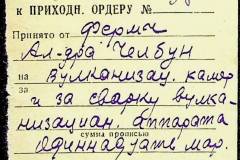 К ПРИХОДН. ОРДЕРУ №
Принято от Ферми
Ал-дра Челбун
на Вулканизац. камер
и за сварку вулка-
низацион. аппарата
сумма прописью
Одиннадцать мар.